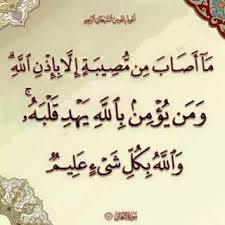 أعوذ بالله من الشيطان الرجيم
مَآ أَصَابَ مِن مُّصِيبَةٍ إِلَّا بِإِذْنِ ٱللَّهِ ۗ
وَمَن يُؤْمِنۢ بِٱللَّهِ يَهْدِ قَلْبَهُۥ ۚ
وَٱللَّهُ بِكُلِّ شَىْءٍ عَلِيمٌ